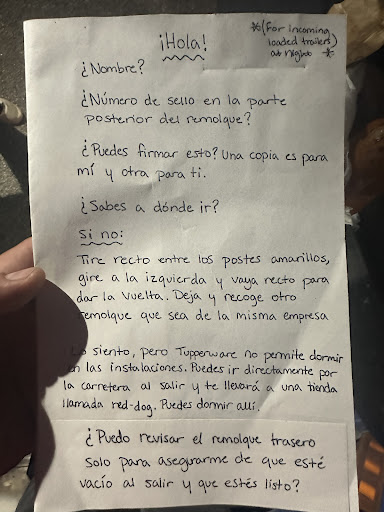 ¡Hola!
*(For incoming
loaded trailers)
at night *
¿Nombre?
¿Número de sello en la parte
posterior del remolque?
¿Puedes firmar esto? Una copia es para
mí y otra para ti.
¿Sabes a dónde ir?
Si no:
Tire recto entre los postes amarillos,
gire a la izquierda y vaya recto para
dar la vuelta. Deja y recoge otro
remolque que sea de la misma empresa
Lo siento, pero Tupperware no permite dormir
en las instalaciones. Puedes ir directamente por
la carretera al salir y te llevará a una tienda
llamada red-dog. Puedes dormir allí.
¿Puedo revisar el remolque trasero
solo para asegurarme de que esté
vacío al salir y que estés listo?